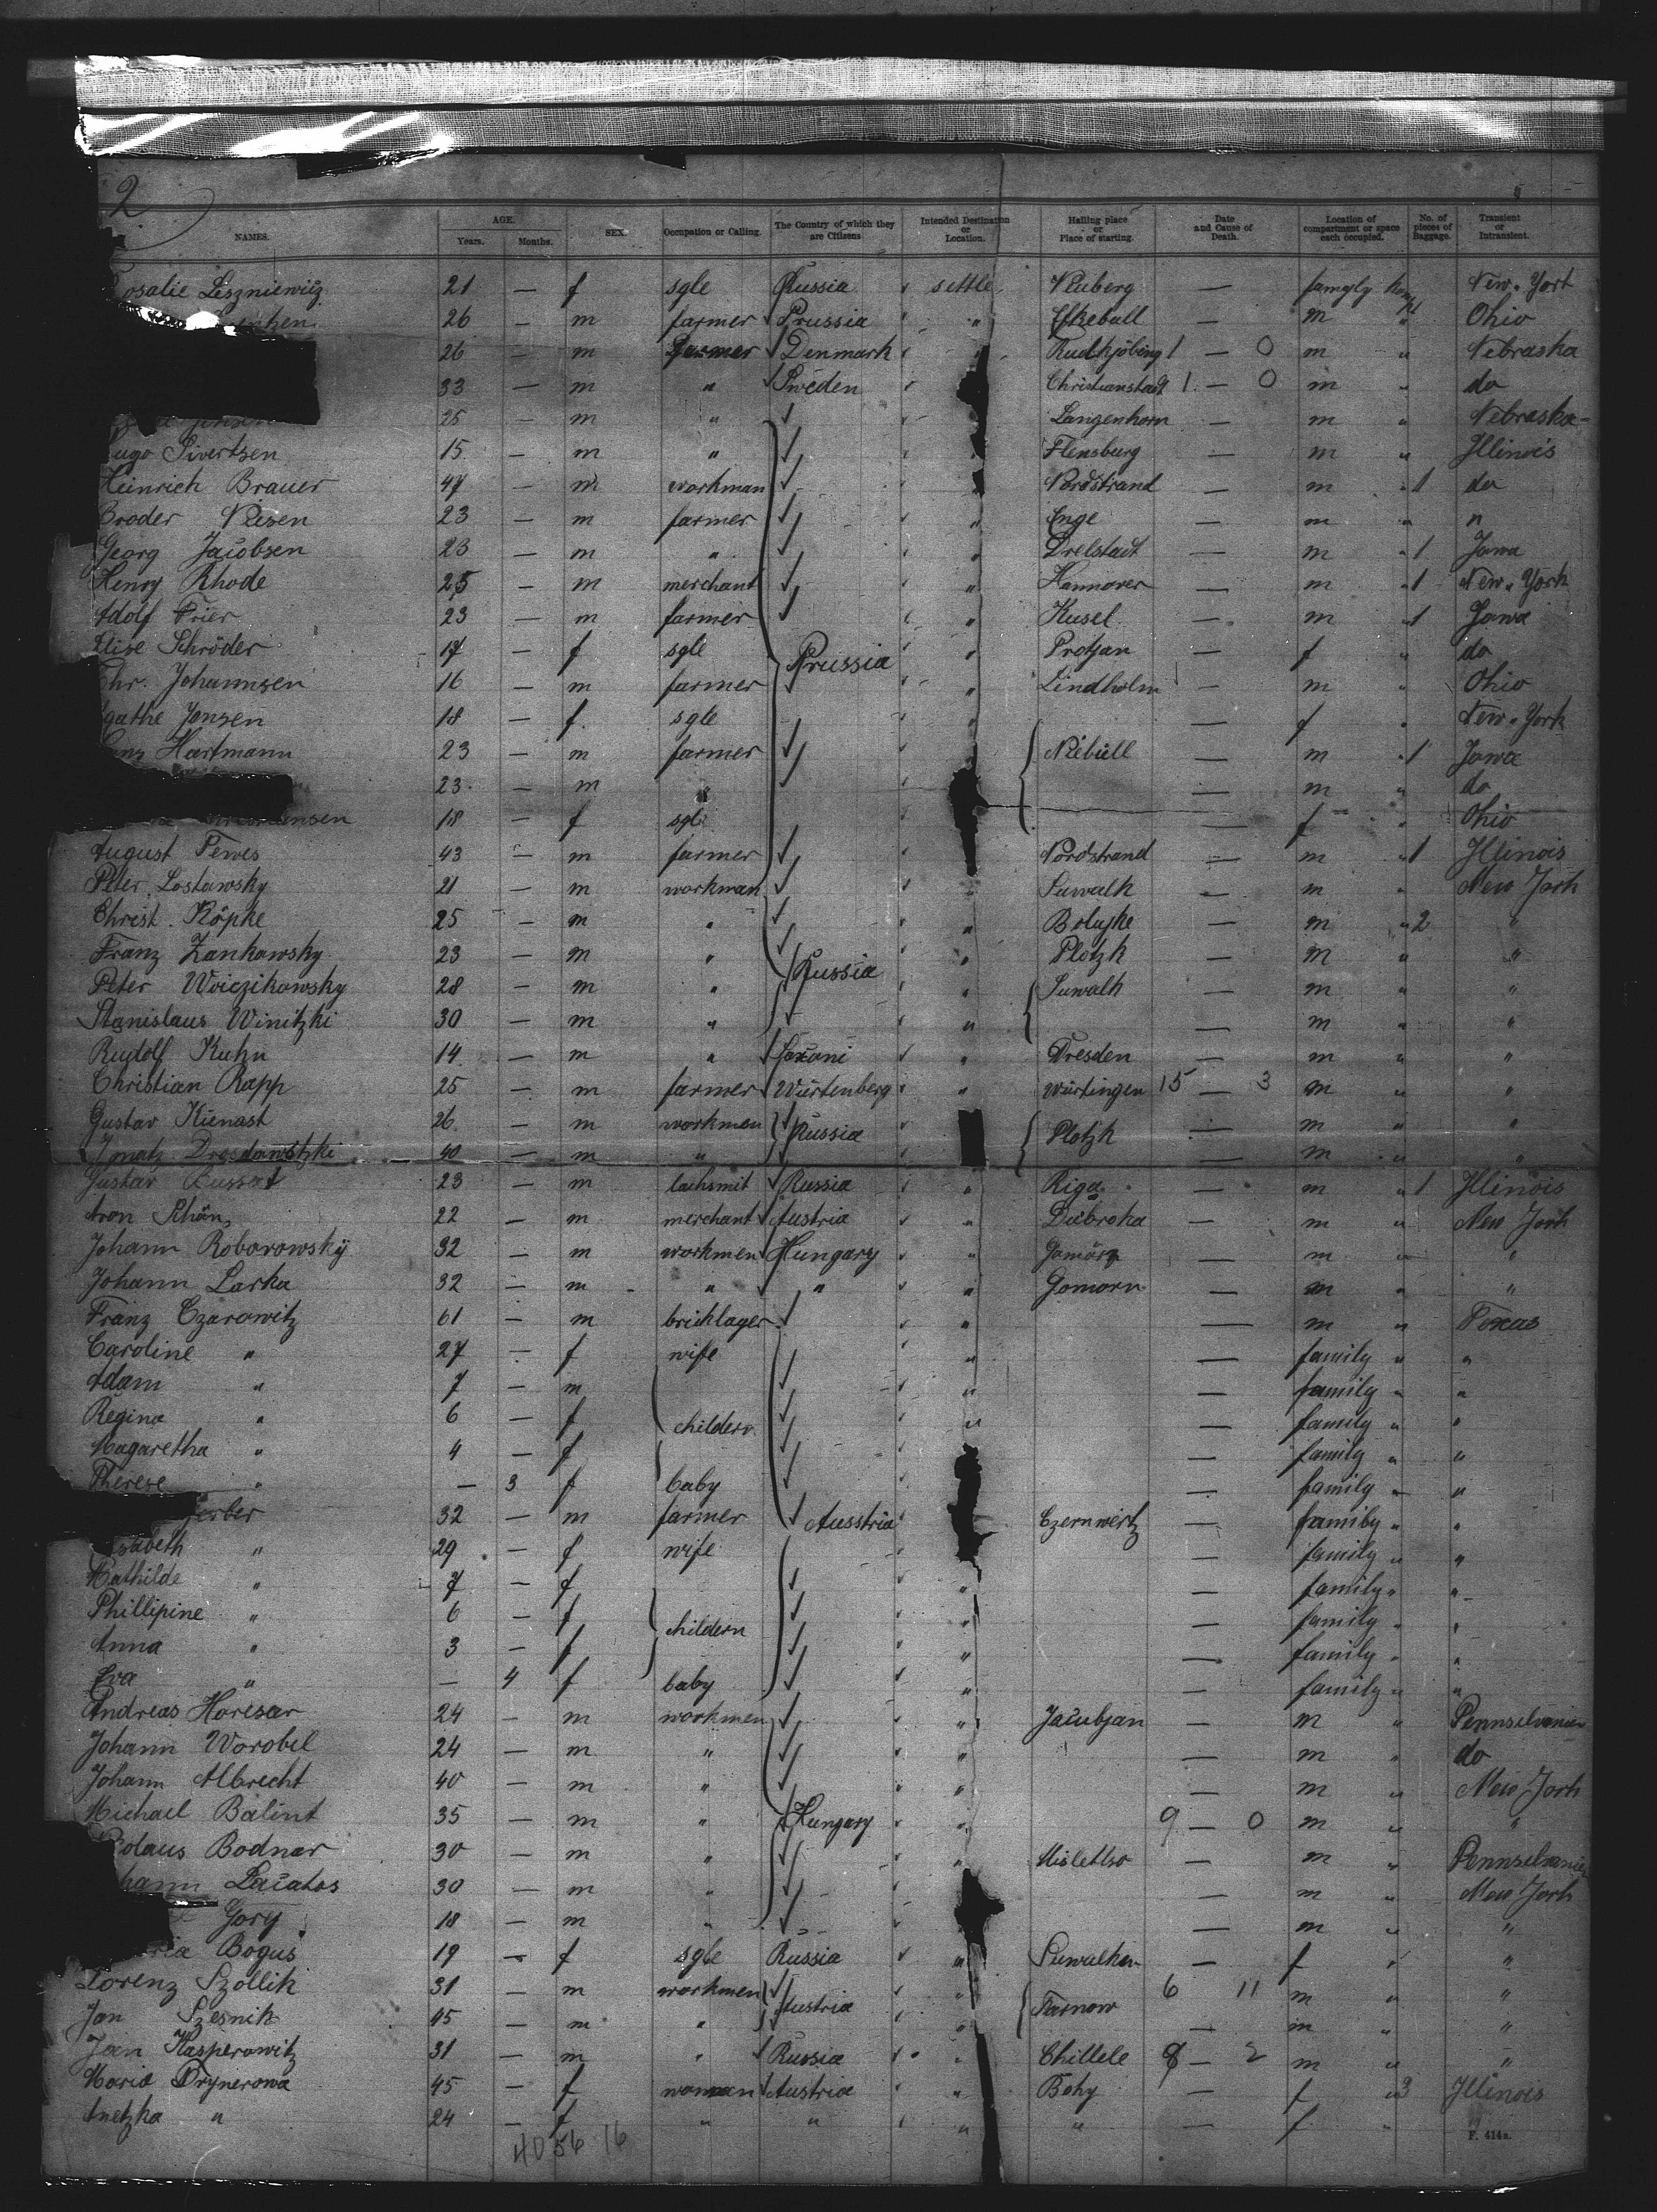 2
NAMES. AGE. Years. Months. SEX. Occupation or Calling. The Country of which they are Citizens Intended Destination or Location. Hailing place or Place of starting. Date and Cause of Death. Location of compartment or space each occupied. No. of pieces of Baggage. Transient or Intransient.
osalie Leszniewiez 21 — f sgle Russia settle Neuberg — New-York
26 — m farmer Prussia " — m " Ohio
26 — m farmer Denmark " Rudkjöbing 1 — 0 m " Nebraska
33 — m " Sweden Christianstadt 1 — 0 m " do
25 — m " Langenhorn — m " Nebraska-
ugo Sivertsen 15 — m " Flensburg — m " Illinois
Heinrich Brauer 47 — m workman Nordstrand — m " 1 do
Broder Nissen 23 — m farmer " Enge — m " "
Georg Jacobsen 23 — m " " Drelstadt — m " 1 Jowa
Henry Rhode 25 — m merchant " Hannover — m " 1 New-York
Adolf Frier 23 — m farmer " Kusel — m " 1 Jowa
Elise Schröder 17 — f sgle Prussia " Protjan — f " do
Chr. Johannsen 16 — m farmer " Lindholm — m " Ohio
gathe Jensen 18 — f sgle — f " New-York
Hartmann 23 — m farmer Niebüll — m " 1 Jowa
23 — m " — m " do
18 — f sgle — f " Ohio
August Pewes 43 — m farmer Nordstrand — m " 1 Illinois
Peter Lostawsky 21 — m workman " Suwalk — m " New York
Christ. Köpke 25 — m " " — m " 2 "
Franz Zankawsky 23 — m " Russia " Plotzk — m " "
Peter Woiczikowsky 28 — m " " Suwalk — m " "
Stanislaus Winitzki 30 — m " " — m " "
Rudolf Kuhn 14 — m " Saxoni " Dresden — m " "
Christian Rapp 25 — m farmer Würtenberg " Würtingen 15 — 3 m " "
Gustav Kienast 26 — m workman Russia Plotzk — m " "
Ignatz Drosdawstzki 40 — m " — m " "
Gustav Bussat 23 — m lochsmit Russia " Riga — m " 1 Illinois
Aron Schön 22 — m merchant Austria " Dubroka — m " New York
Johann Roborowsky 32 — m workmen Hungary " Gomörn — m " "
Johann Larka 32 — m " " " Gomorn — m " "
Franz Czarowitz 61 — m bricklager " — m " Texas
Caroline " 27 — f wife " — family " "
Adam " 7 — m " — family " "
Regina " 6 — f childern " — family " "
Magaretha " 4 — f — family " "
Therese " — 3 f baby — family " "
32 — m farmer Ausstria Czernwertz — family " "
sabeth " 29 — f wife — family " "
Mathilde " 7 — f " — family " "
Phillipine " 6 — f childern " — family " "
Anna " 3 — f " — family " "
Eva " — 4 f baby " — family " "
Andreas Horesar 24 — m workmen " Jacubjan — m " Pennselvanien
Johann Worobel 24 — m " " — m " do
Johann Albrecht 40 — m " " — m " New York
Michael Balint 35 — m " Hungary " 9 — 0 m " "
olaus Bodnar 30 — m " " Misletlso — m " Pennselvanien
hann Lacatos 30 — m " — m " New York
Gory 18 — m " — m " "
ria Bogus 19 — f sgle Russia " Suwalken — f " "
Lorenz Szollik 31 — m workmen Austria " Tarnow 6 11 m " "
Jan Szesnik 45 — m " " — m " "
Jan Kasperowitz 31 — m " Russia " Chillele 8 — 2 m " "
Maria Drynerowa 45 — f woman Austria " Bohy — f " 3 Illinois
Anetzka " 24 — f " " " " — f "
40 56 16
F. 414a.